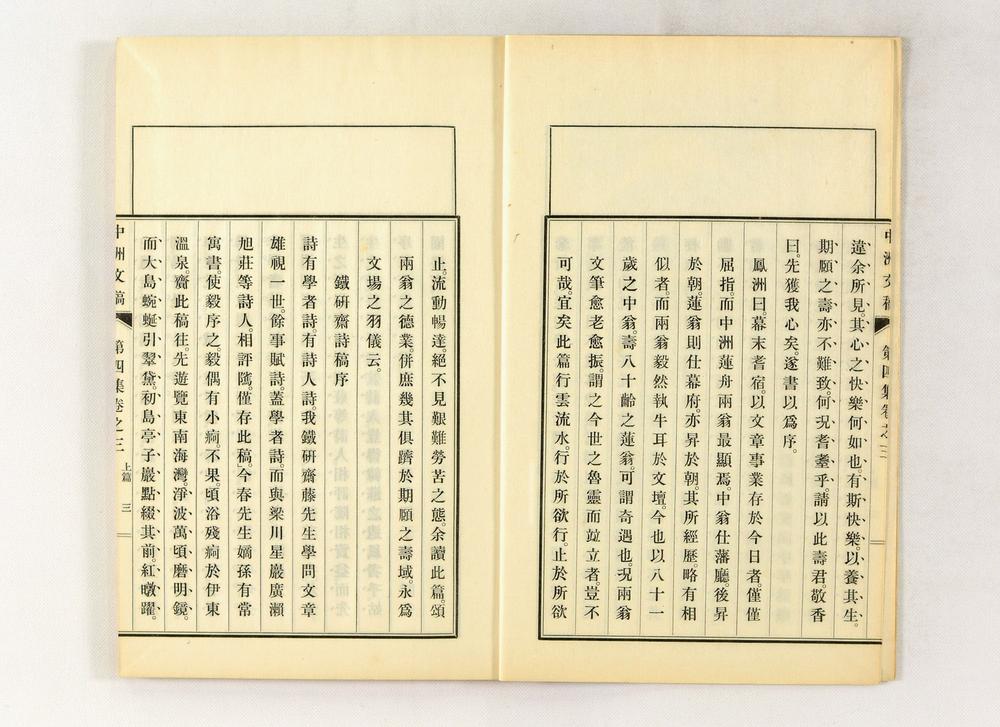 違余所見。其心之快樂何如也。有斯快樂。以養其生。
期願之壽亦不難致。何況耆耋乎。請以此壽君。敬香
曰。先獲我心矣。遂書以爲序。
鳳洲曰。幕末耆宿。以文章事業存於今日者。僅僅
屈指。而中洲蓮舟兩翁最顯焉。中翁仕藩廳。後昇
於朝。蓮翁則仕幕府。亦昇於朝。其所經歷。略有相
似者。而兩翁毅然執牛耳於文壇。今也以八十一
歲之中翁。壽八十齡之蓮翁。可謂奇遇也。況兩翁
文筆愈老愈振。謂之今世之魯靈而竝立者。豈不
可哉。宜矣此篇行雲流水。行於所欲行。止於所欲
中洲文稿 第四集卷之三 上篇 三
止。流動暢達。絕不見艱難勞苦之態。余讀此篇。頌
兩翁之德業。併庶幾其俱躋於期願之壽域。永爲
文場之羽儀云。
鐵研齋詩稿序
詩有學者詩。有詩人詩。我鐵研齋藤先生學問文章
雄視一世。餘事賦詩。蓋學者詩。而與梁川星巖廣瀨
旭莊等詩人。相評隲。僅存此稿。今春先生嫡孫有常
寓書。使毅序之。毅偶有小痾。不果。頃浴殘痾於伊東
溫泉。齎此稿往。先遊覽東南海灣。淨波萬頃磨明鏡。
而大島蜿蜒引翠黛。初島亭子巖點綴其前。紅暾躍。
中洲文稿 第四集卷之三